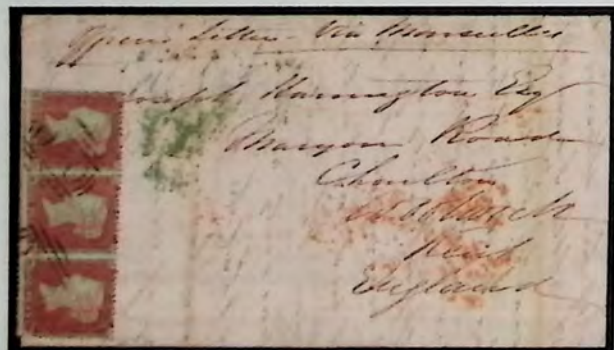 Officers Letter - Via Marseilles
Joseph Harrington Esq
Maryon Road
Charlton
Woolwich
Kent
England